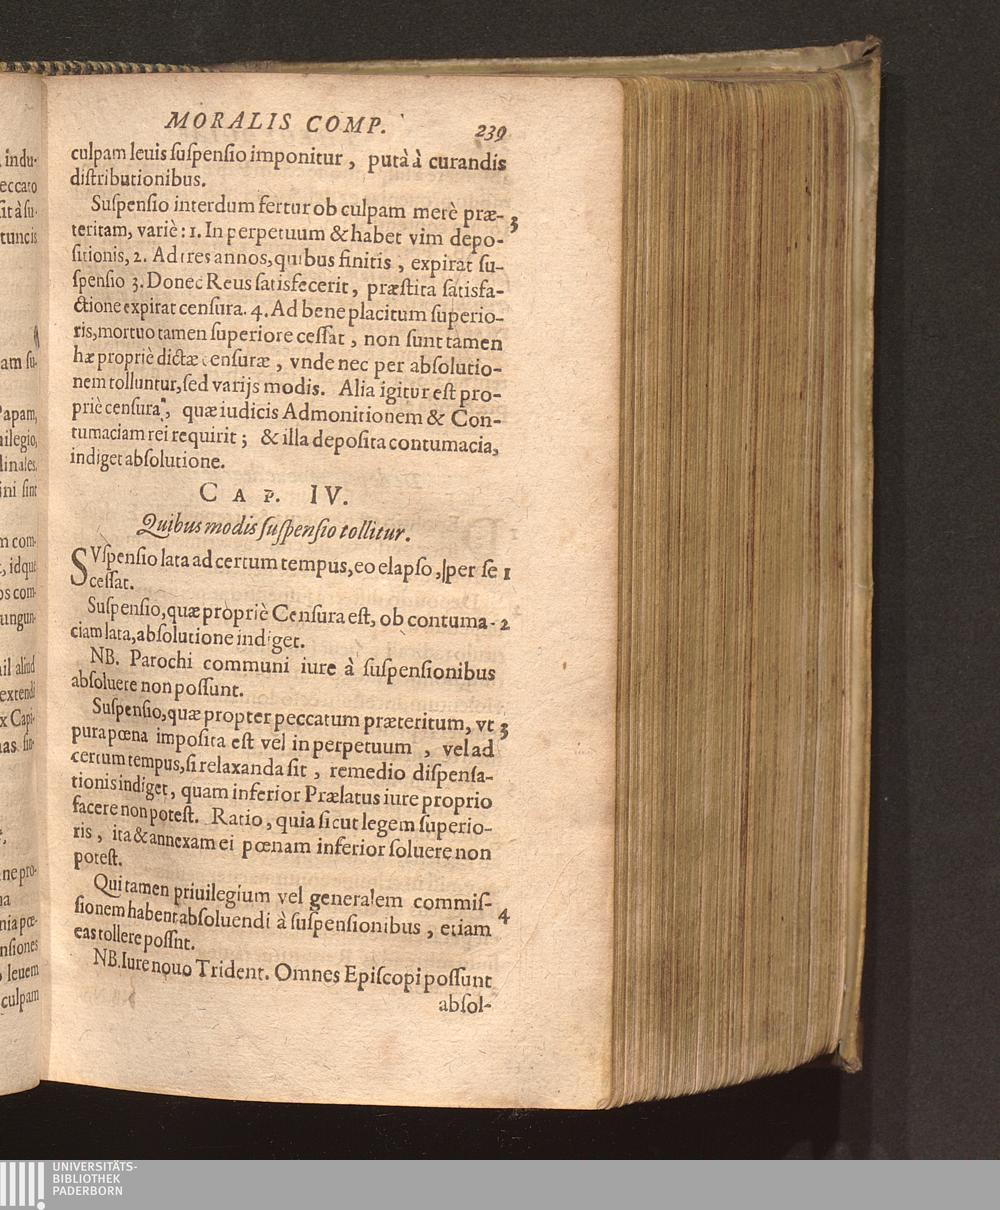 MORALIS COMP. 239
culpam leuis ſuſpenſio imponitur, putà à curandis
diſtributionibus.
Suſpenſio interdum fertur ob culpam merè præ- 3
teritam, variè: 1. In perpetuum & habet vim depo-
ſitionis, 2. Ad tres annos, quibus finitis, expirat ſu-
ſpenſio 3. Donec Reus ſatisfecerit, præſtita ſatisfa-
ctione expirat cenſura. 4. Ad bene placitum ſuperio-
ris, mortuo tamen ſuperiore ceſſat, non ſunt tamen
hæ propriè dictæ cenſuræ, vnde nec per abſolutio-
nem tolluntur, ſed varijs modis. Alia igitur eſt pro-
priè cenſura, quæ iudicis Admonitionem & Con-
tumaciam rei requirit; & illa depoſita contumacia,
indiget abſolutione.
CAP. IV.
Quibus modis ſuſpenſio tollitur.
SVſpenſio lata ad certum tempus, eo elapſo, per ſe 1
ceſſat.
Suſpenſio, quæ propriè Cenſura eſt, ob contuma- 2
ciam lata, abſolutione indiget.
NB. Parochi communi iure à ſuſpenſionibus
abſoluere non poſſunt.
Suſpenſio, quæ propter peccatum præteritum, vt 3
pura pœna impoſita eſt vel in perpetuum, vel ad
certum tempus, ſi relaxanda ſit, remedio diſpenſa-
tionis indiget, quam inferior Prælatus iure proprio
facere non poteſt. Ratio, quia ſicut legem ſuperio-
ris, ita & annexam ei pœnam inferior ſoluere non
poteſt.
Qui tamen priuilegium vel generalem commiſ-
ſionem habent abſoluendi à ſuſpenſionibus, etiam 4
eas tollere poſſnt.
NB. Iure nouo Trident. Omnes Epiſcopi poſſunt
abſol-
UNIVERSITÄTS-
BIBLIOTHEK
PADERBORN